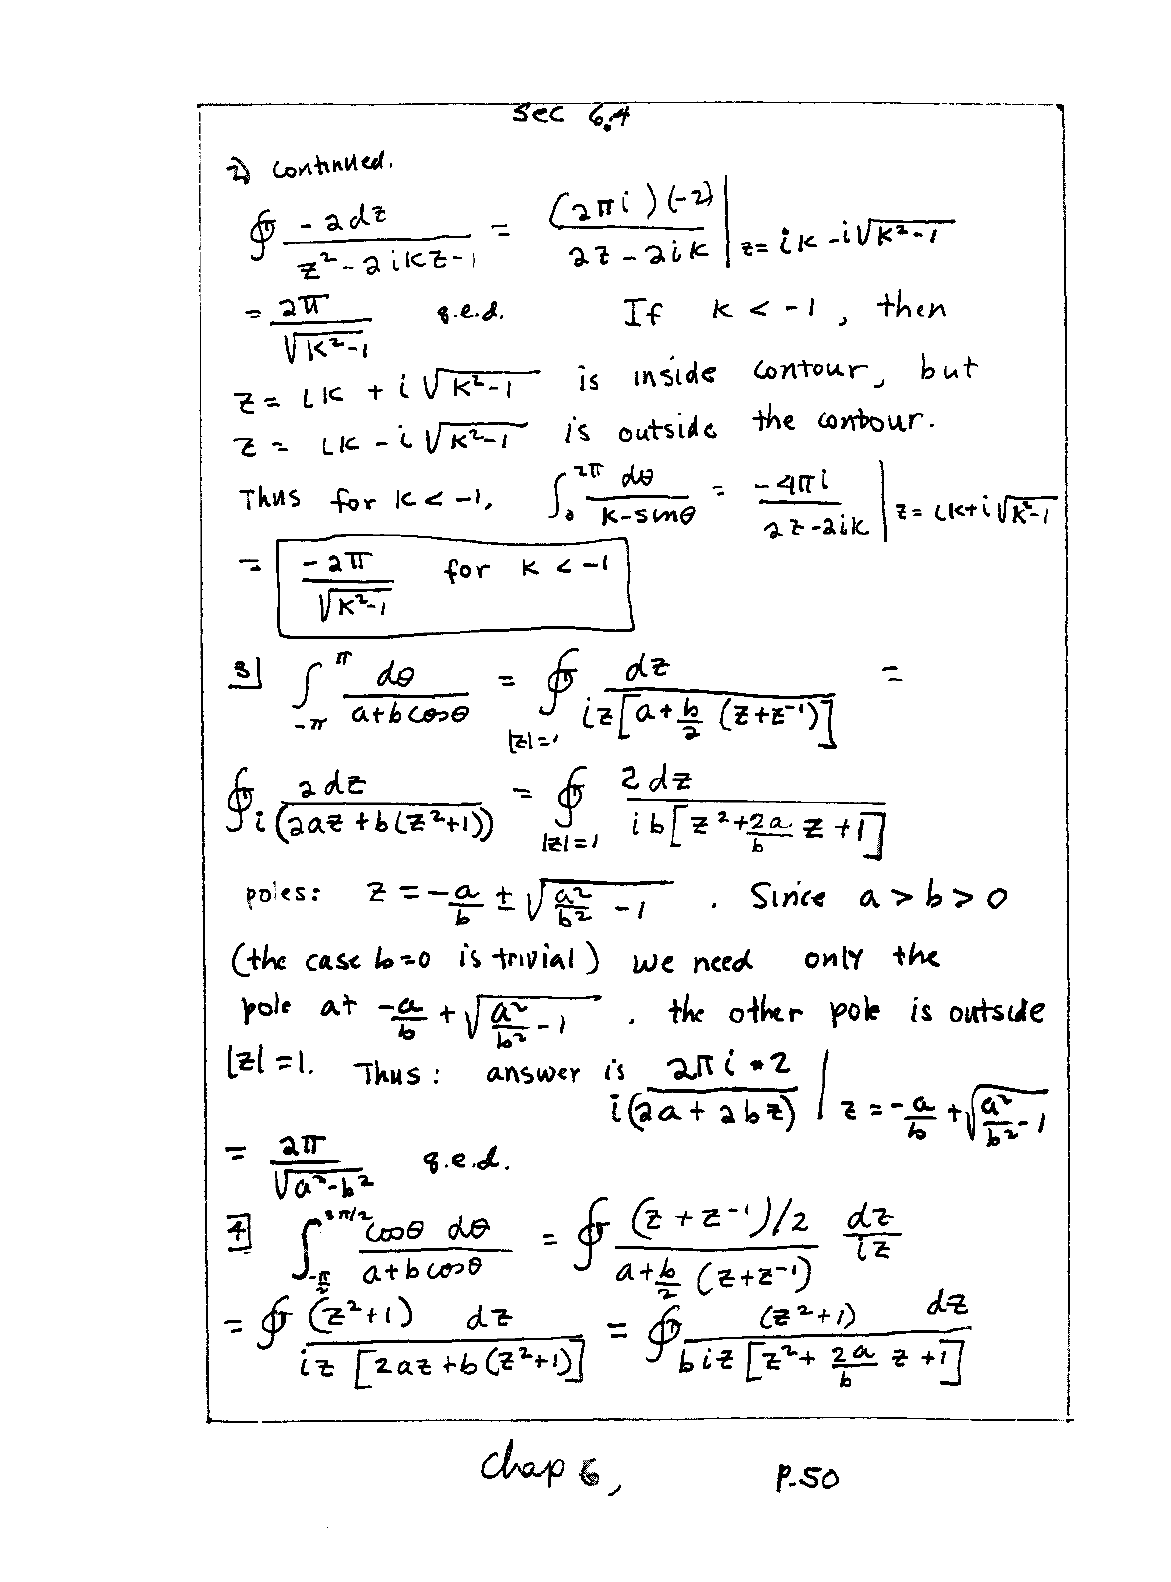 Sec 6.4
2) continued.
∮ -2dz / (z² - 2ikz - 1) = (2πi)(-2) / (2z - 2ik) | z = ik - i√(k²-1)
= 2π / √(k²-1) q.e.d. If k < -1, then
z = ik + i√(k²-1) is inside contour, but
z = ik - i√(k²-1) is outside the contour.
Thus for k < -1, ∫₀^2π dθ / (k - sinθ) = -4πi / (2z - 2ik) | z = ik + i√(k²-1)
= -2π / √(k²-1) for k < -1
3] ∫_-π^π dθ / (a + b cosθ) = ∮_|z|=1 dz / (iz[a + b/2 (z + z⁻¹)]) =
∮ 2dz / (i(2az + b(z²+1))) = ∮_|z|=1 2dz / (ib[z² + 2a/b z + 1])
poles: z = -a/b ± √(a²/b² - 1) . Since a > b > 0
(the case b=0 is trivial) we need only the
pole at -a/b + √(a²/b² - 1) . the other pole is outside
|z| = 1. Thus: answer is 2πi • 2 / (i(2a + 2bz)) | z = -a/b + √(a²/b² - 1)
= 2π / √(a²-b²) q.e.d.
4] ∫_-π/2^3π/2 cosθ dθ / (a + b cosθ) = ∮ (z + z⁻¹)/2 / (a + b/2 (z + z⁻¹)) dz / iz
= ∮ (z²+1) dz / (iz [2az + b(z²+1)]) = ∮ (z²+1) dz / (biz [z² + 2a/b z + 1])
Chap 6, P.50